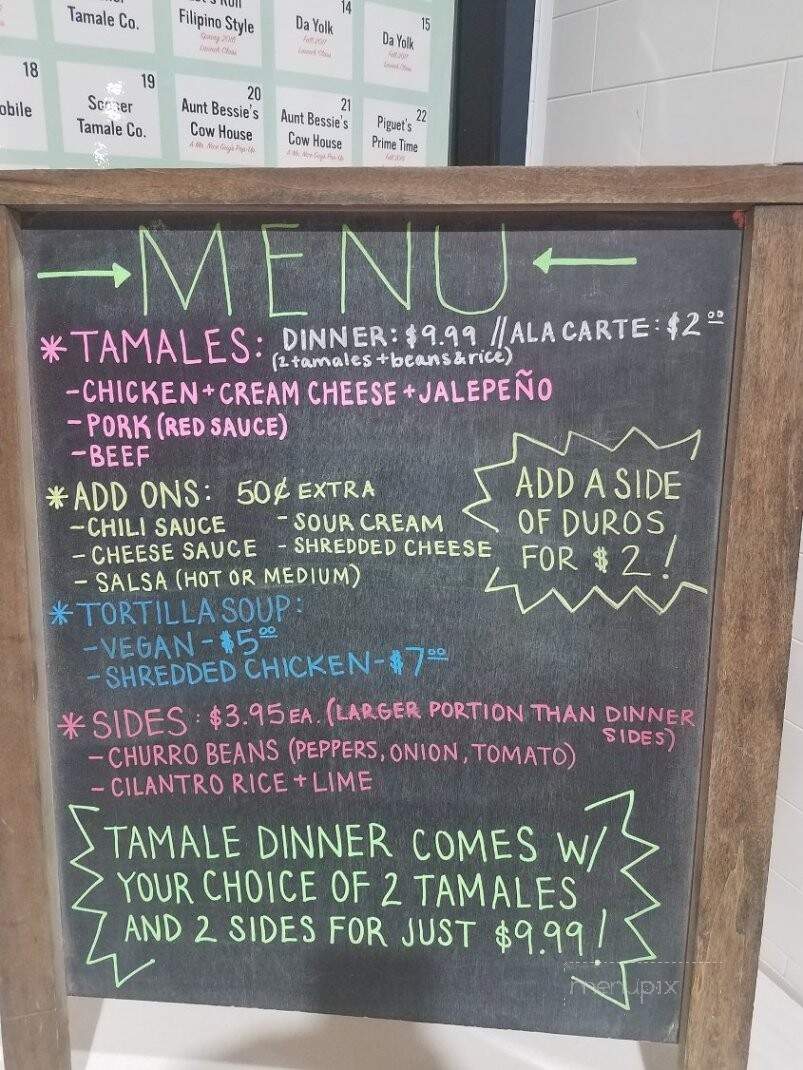 14
15
Tamale Co.
Filipino Style
Spring 2018
Launch Class
Da Yolk
Fall 2017
Launch Class
Da Yolk
Fall 2017
Launch Class
18
19
20
21
22
obile
Sooner
Tamale Co.
Aunt Bessie's
Cow House
A Mr. Nice Guys Pop-Up
Aunt Bessie's
Cow House
A Mr. Nice Guys Pop-Up
Piguet's
Prime Time
MENU
*TAMALES: DINNER: $9.99 // ALA CARTE: $2.00
(2 tamales + beans & rice)
-CHICKEN + CREAM CHEESE + JALEPEÑO
-PORK (RED SAUCE)
-BEEF
*ADD ONS: 50¢ EXTRA
-CHILI SAUCE -SOUR CREAM
-CHEESE SAUCE -SHREDDED CHEESE
-SALSA (HOT OR MEDIUM)
ADD A SIDE
OF DUROS
FOR $2!
*TORTILLA SOUP:
-VEGAN - $5.00
-SHREDDED CHICKEN - $7.00
*SIDES: $3.95 EA. (LARGER PORTION THAN DINNER
SIDES)
-CHURRO BEANS (PEPPERS, ONION, TOMATO)
-CILANTRO RICE + LIME
TAMALE DINNER COMES W/
YOUR CHOICE OF 2 TAMALES
AND 2 SIDES FOR JUST $9.99!
menupix